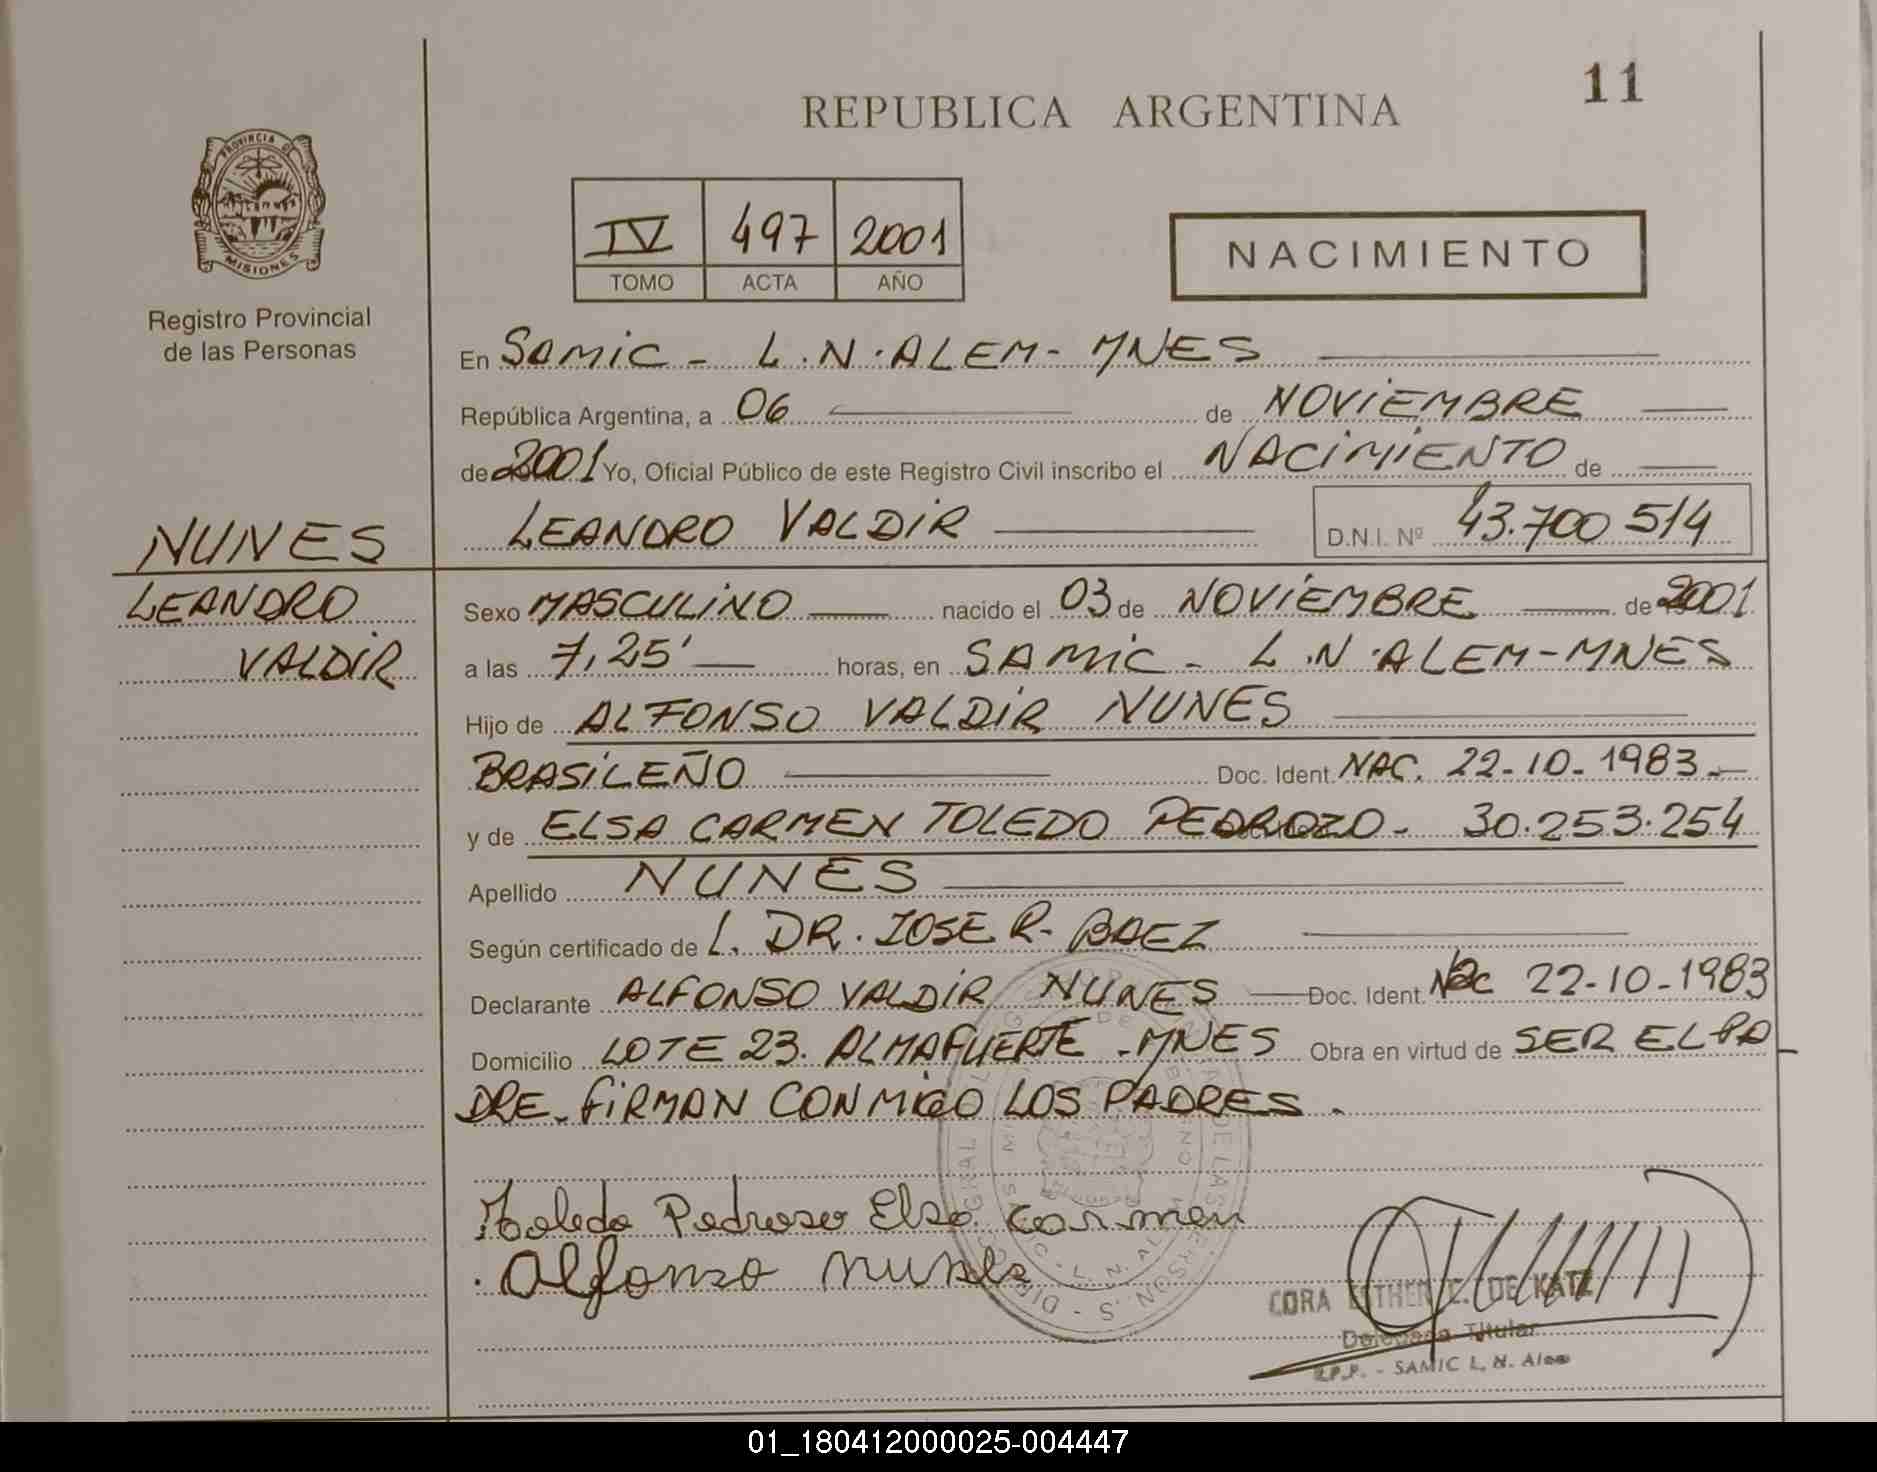 11
REPUBLICA ARGENTINA
PROVINCIA DE
MISIONES
Registro Provincial
de las Personas
IV 497 2001
TOMO ACTA AÑO
NACIMIENTO
En SAMIC - L.N.ALEM - MNES
República Argentina, a 06 de NOVIEMBRE
de 2001 Yo, Oficial Público de este Registro Civil inscribo el NACIMIENTO de
LEANDRO VALDIR D.N.I. Nº 43.700 514
NUNES
LEANDRO
VALDIR
Sexo MASCULINO nacido el 03 de NOVIEMBRE de 2001
a las 7,25' horas, en SAMIC - L.N.ALEM-MNES
Hijo de ALFONSO VALDIR NUNES
BRASILEÑO Doc. Ident. NAC. 22-10-1983.-
y de ELSA CARMEN TOLEDO PEDROZO - 30.253.254
Apellido NUNES
Según certificado de L. DR. JOSE R. BAEZ
Declarante ALFONSO VALDIR NUNES Doc. Ident. Nac 22-10-1983
Domicilio LOTE 23. ALMAFUERTE - MNES Obra en virtud de SER EL PA
DRE - FIRMAN CONMIGO LOS PADRES.
Toledo Pedroso Elsa Carmen
Alfonso Nunes
CORA ESTHER C. DE KATZ
Delegada Titular
R.P.P. - SAMIC L. N. Alem
01_180412000025-004447